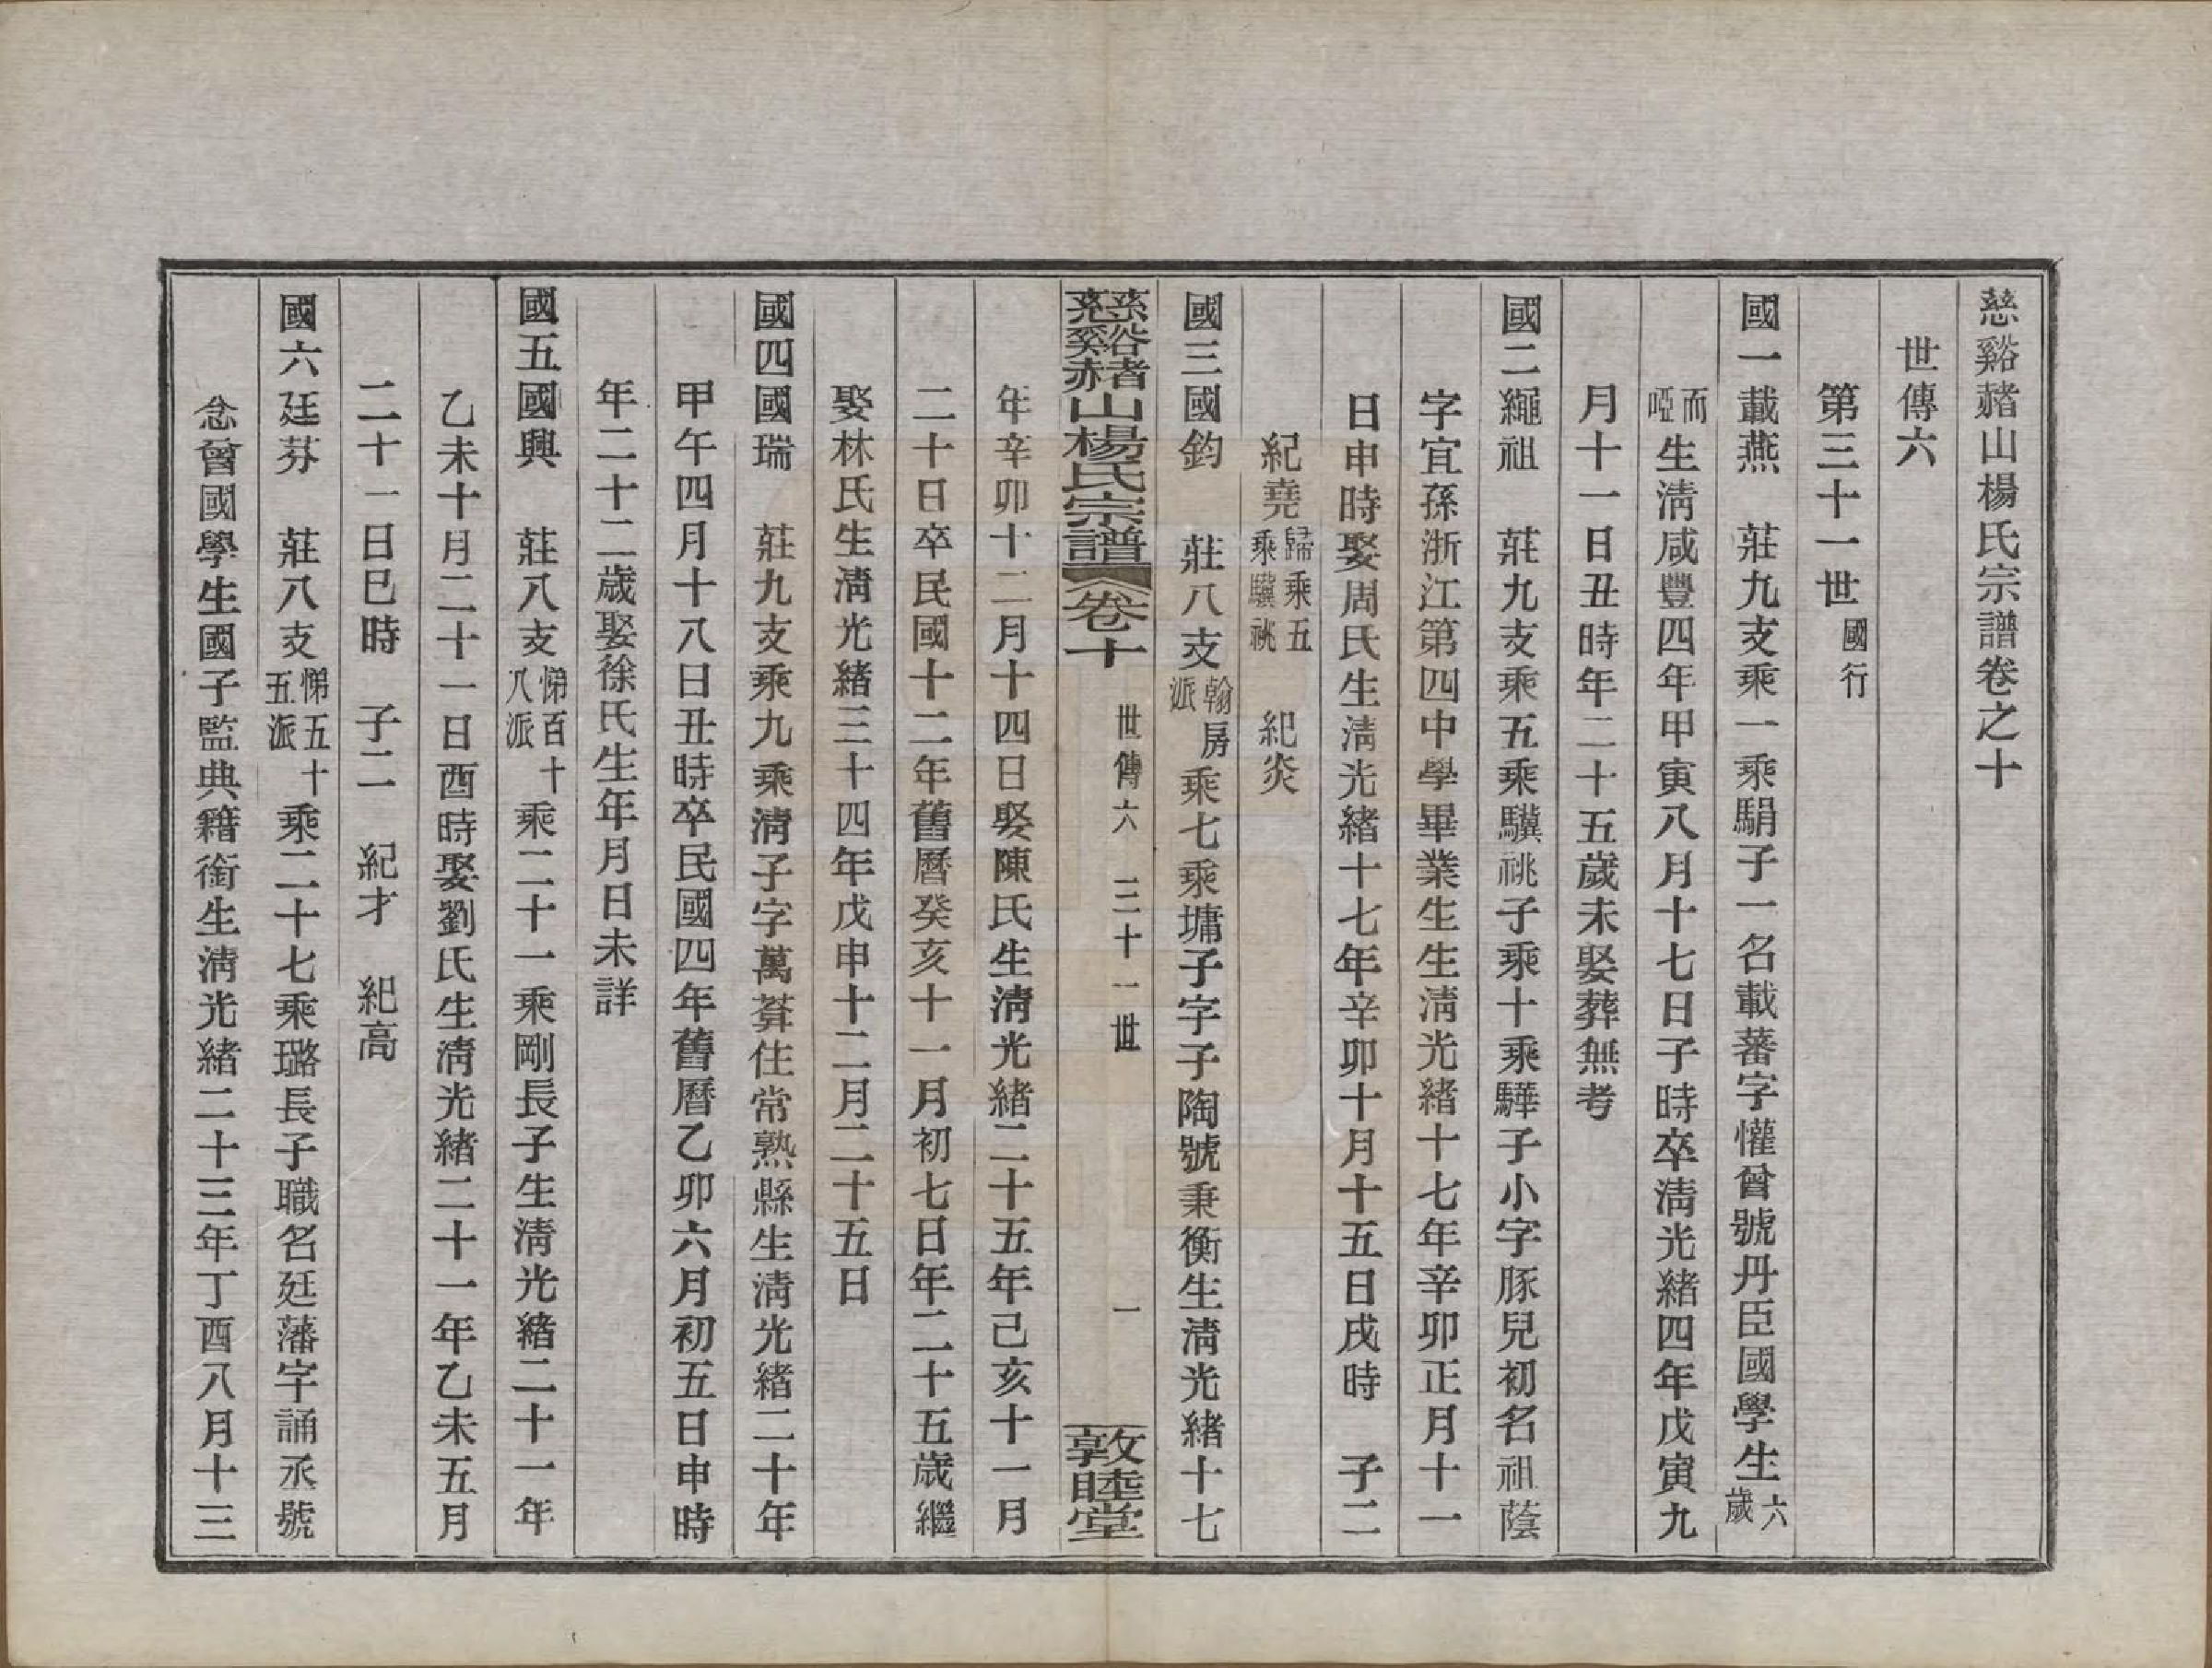 慈谿赭山楊氏宗譜卷之十
世傳六
第三十一世國行
國一載燕　莊九支乘一乘駽子一名載蕃字懽曾號丹臣國學生六歲
而啞生淸咸豐四年甲寅八月十七日子時卒淸光緖四年戊寅九
月十一日丑時年二十五歲未娶葬無考
國二繩祖　莊九支乘五乘驥祧子乘十乘驊子小字豚兒初名祖蔭
字宜孫浙江第四中學畢業生生淸光緖十七年辛卯正月十一
日申時娶周氏生淸光緖十七年辛卯十月十五日戌時　子二
紀堯歸乘五乘驥祧　紀炎
國三國鈞　莊八支翰房派乘七乘墉子字子陶號秉衡生淸光緖十七
慈谿赭山楊氏宗譜　卷十　世傳六　三十一世　一　敦睦堂
年辛卯十二月十四日娶陳氏生淸光緖二十五年己亥十一月
二十日卒民國十二年舊曆癸亥十一月初七日年二十五歲繼
娶林氏生淸光緖三十四年戊申十二月二十五日
國四國瑞　莊九支乘九乘淸子字萬葊住常熟縣生淸光緖二十年
甲午四月十八日丑時卒民國四年舊曆乙卯六月初五日申時
年二十二歲娶徐氏生年月日未詳
國五國興　莊八支悌百十八派乘二十一乘剛長子生淸光緖二十一年
乙未十月二十一日酉時娶劉氏生淸光緖二十一年乙未五月
二十一日巳時　子二　紀才　紀高
國六廷芬　莊八支悌五十五派乘二十七乘璐長子職名廷藩字誦丞號
念曾國學生國子監典籍銜生淸光緖二十三年丁酉八月十三